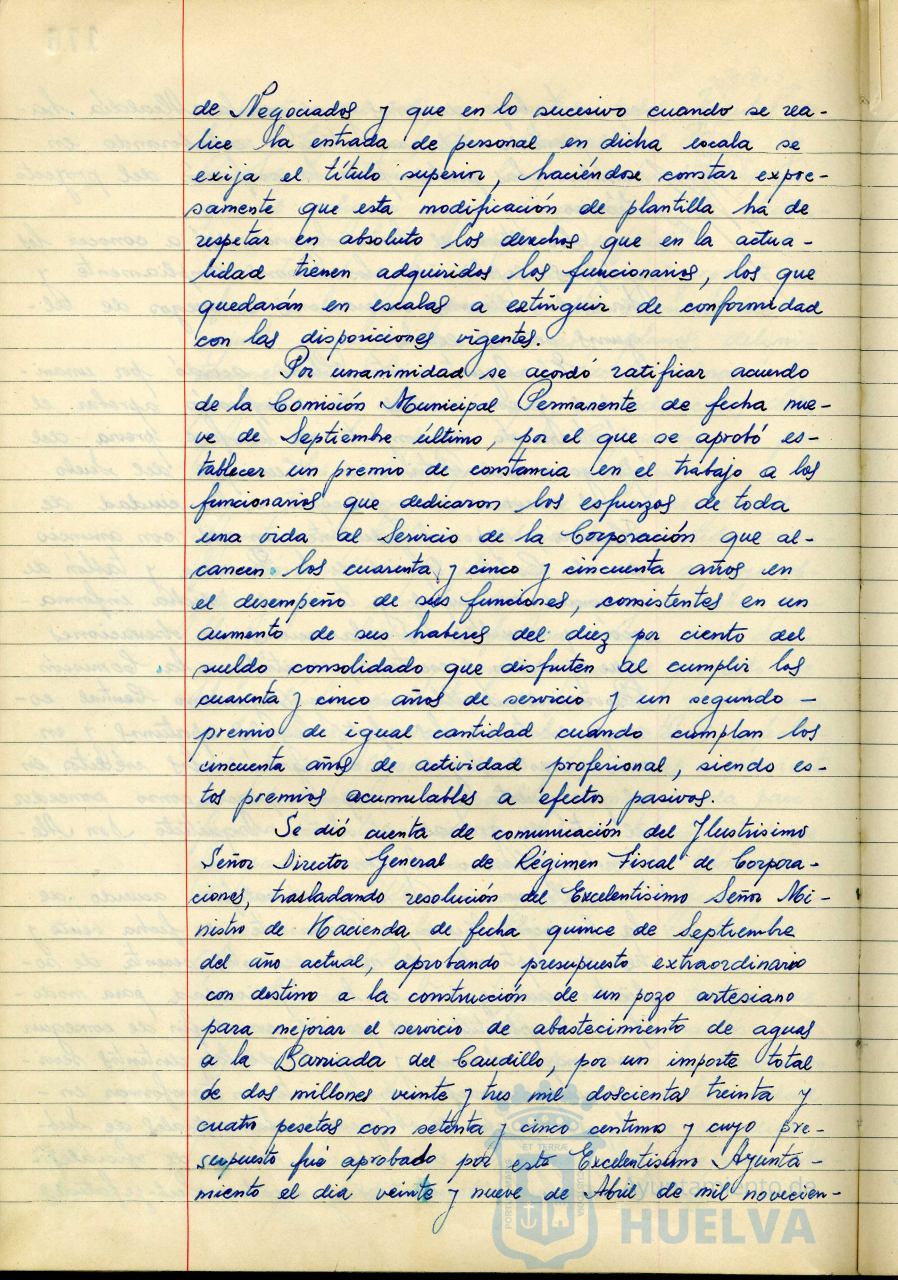 de Negociados y que en lo sucesivo cuando se rea-
lice la entrada de personal en dicha escala se
exija el título superior, haciéndose constar expre-
samente que esta modificación de plantilla ha de
respetar en absoluto los derechos que en la actua-
lidad tienen adquiridos los funcionarios, los que
quedarán en escalas a extinguir de conformidad
con las disposiciones vigentes.
Por unanimidad se acordó ratificar acuerdo
de la Comisión Municipal Permanente de fecha nue-
ve de Septiembre último, por el que se aprobó es-
tablecer un premio de constancia en el trabajo a los
funcionarios que dedicaron los esfuerzos de toda
una vida al Servicio de la Corporación que al-
cancen los cuarenta y cinco y cincuenta años en
el desempeño de sus funciones, consistentes en un
aumento de sus haberes del diez por ciento del
sueldo consolidado que disfruten al cumplir los
cuarenta y cinco años de servicio y un segundo -
premio de igual cantidad cuando cumplan los
cincuenta años de actividad profesional, siendo es-
tos premios acumulables a efectos pasivos.
Se dió cuenta de comunicación del Ilustrisimo
Señor Director General de Régimen Fiscal de Corpora-
ciones, trasladando resolución del Excelentisimo Señor Mi-
nistro de Hacienda de fecha quince de Septiembre
del año actual, aprobando presupuesto extraordinario
con destino a la construcción de un pozo artesiano
para mejorar el servicio de abastecimiento de aguas
a la Barriada del Caudillo, por un importe total
de dos millones veinte y tres mil doscientas treinta y
cuatro pesetas con setenta y cinco centimos y cuyo pre-
supuesto fué aprobado por este Excelentisimo Ayunta-
miento el dia veinte y nueve de Abril de mil novecien-
Ayuntamiento de
HUELVA